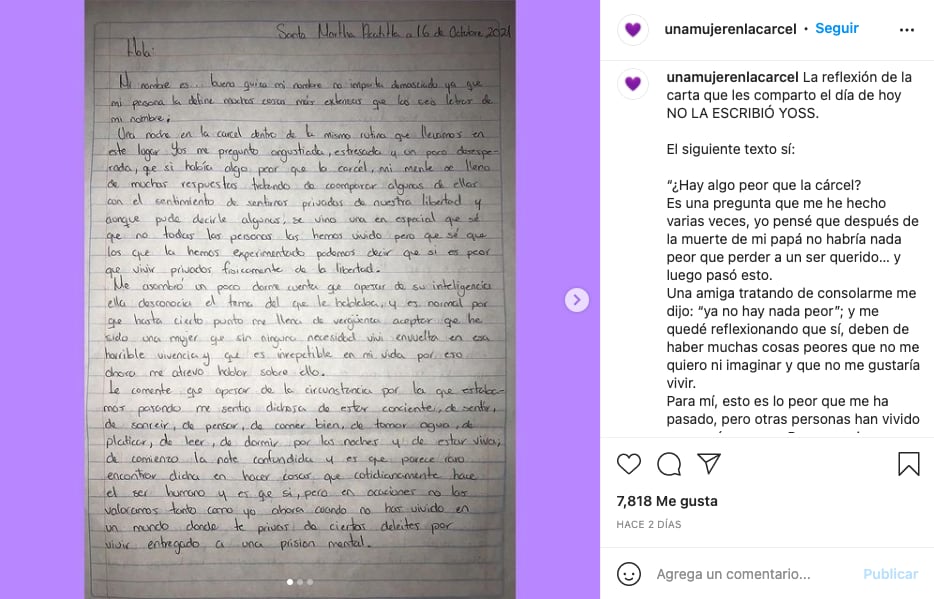 Santa Martha Acatitla a 16 de Octubre, 2021
Hola:
Mi nombre es... bueno quiza mi nombre no importa demasiado ya que
mi persona la define muchas cosas más extensas que las seis letras de
mi nombre;
Una noche en la carcel dentro de la misma rutina que llevamos en
este lugar Yos me pregunto angustiada, estresada y un poco desespe-
rada, que si había algo peor que la carcél, mi mente se lleno
de muchas respuestas tratando de coomparar algunas de ellas
con el sentimiento de sentirnos privadas de nuestra libertad y
aunque pude decirle algunas, se vino una en especial que sé
que no todas las personas las hemos vivido pero que sé que
los que la hemos experimentado podemos decir que si es peor
que vivir privados fisicamente de la libertad.
Me asombró un poco darme cuenta que apesar de su inteligencia
ella desconocia el tema del que le hablaba, y es normal por
que hasta cierto punto me llena de vergüenza aceptar que he
sido una mujer que sin ninguna necesidad vivi envuelta en esa
horrible vivencia y que es irrepetible en mi vida por eso
ahora me atrevo hablar sobre ello.
Le comente que apesar de la circunstancia por la que estaba-
mos pasando me sentia dichosa de estar conciente, de sentir,
de sonreir, de pensar, de comer bien, de tomar agua, de
platicar, de leer, de dormir por las noches y de estar viva;
de comienzo la note confundida y es que parece raro
encontrar dicha en hacer cosas que cotidianamente hace
el ser humano y es que si, pero en ocaciones no las
valoramos tanto como yo ahora cuando no has vivido en
un mundo donde te privas de ciertos deleites por
vivir entregado a una prision mental.
unamujerenlacarcel • Seguir
unamujerenlacarcel La reflexión de la
carta que les comparto el día de hoy
NO LA ESCRIBIÓ YOSS.
El siguiente texto sí:
“¿Hay algo peor que la cárcel?
Es una pregunta que me he hecho
varias veces, yo pensé que después de
la muerte de mi papá no habría nada
peor que perder a un ser querido... y
luego pasó esto.
Una amiga tratando de consolarme me
dijo: “ya no hay nada peor”; y me
quedé reflexionando que sí, deben de
haber muchas cosas peores que no me
quiero ni imaginar y que no me gustaría
vivir.
Para mí, esto es lo peor que me ha
pasado, pero otras personas han vivido
7,818 Me gusta
HACE 2 DÍAS
Agrega un comentario...
Publicar